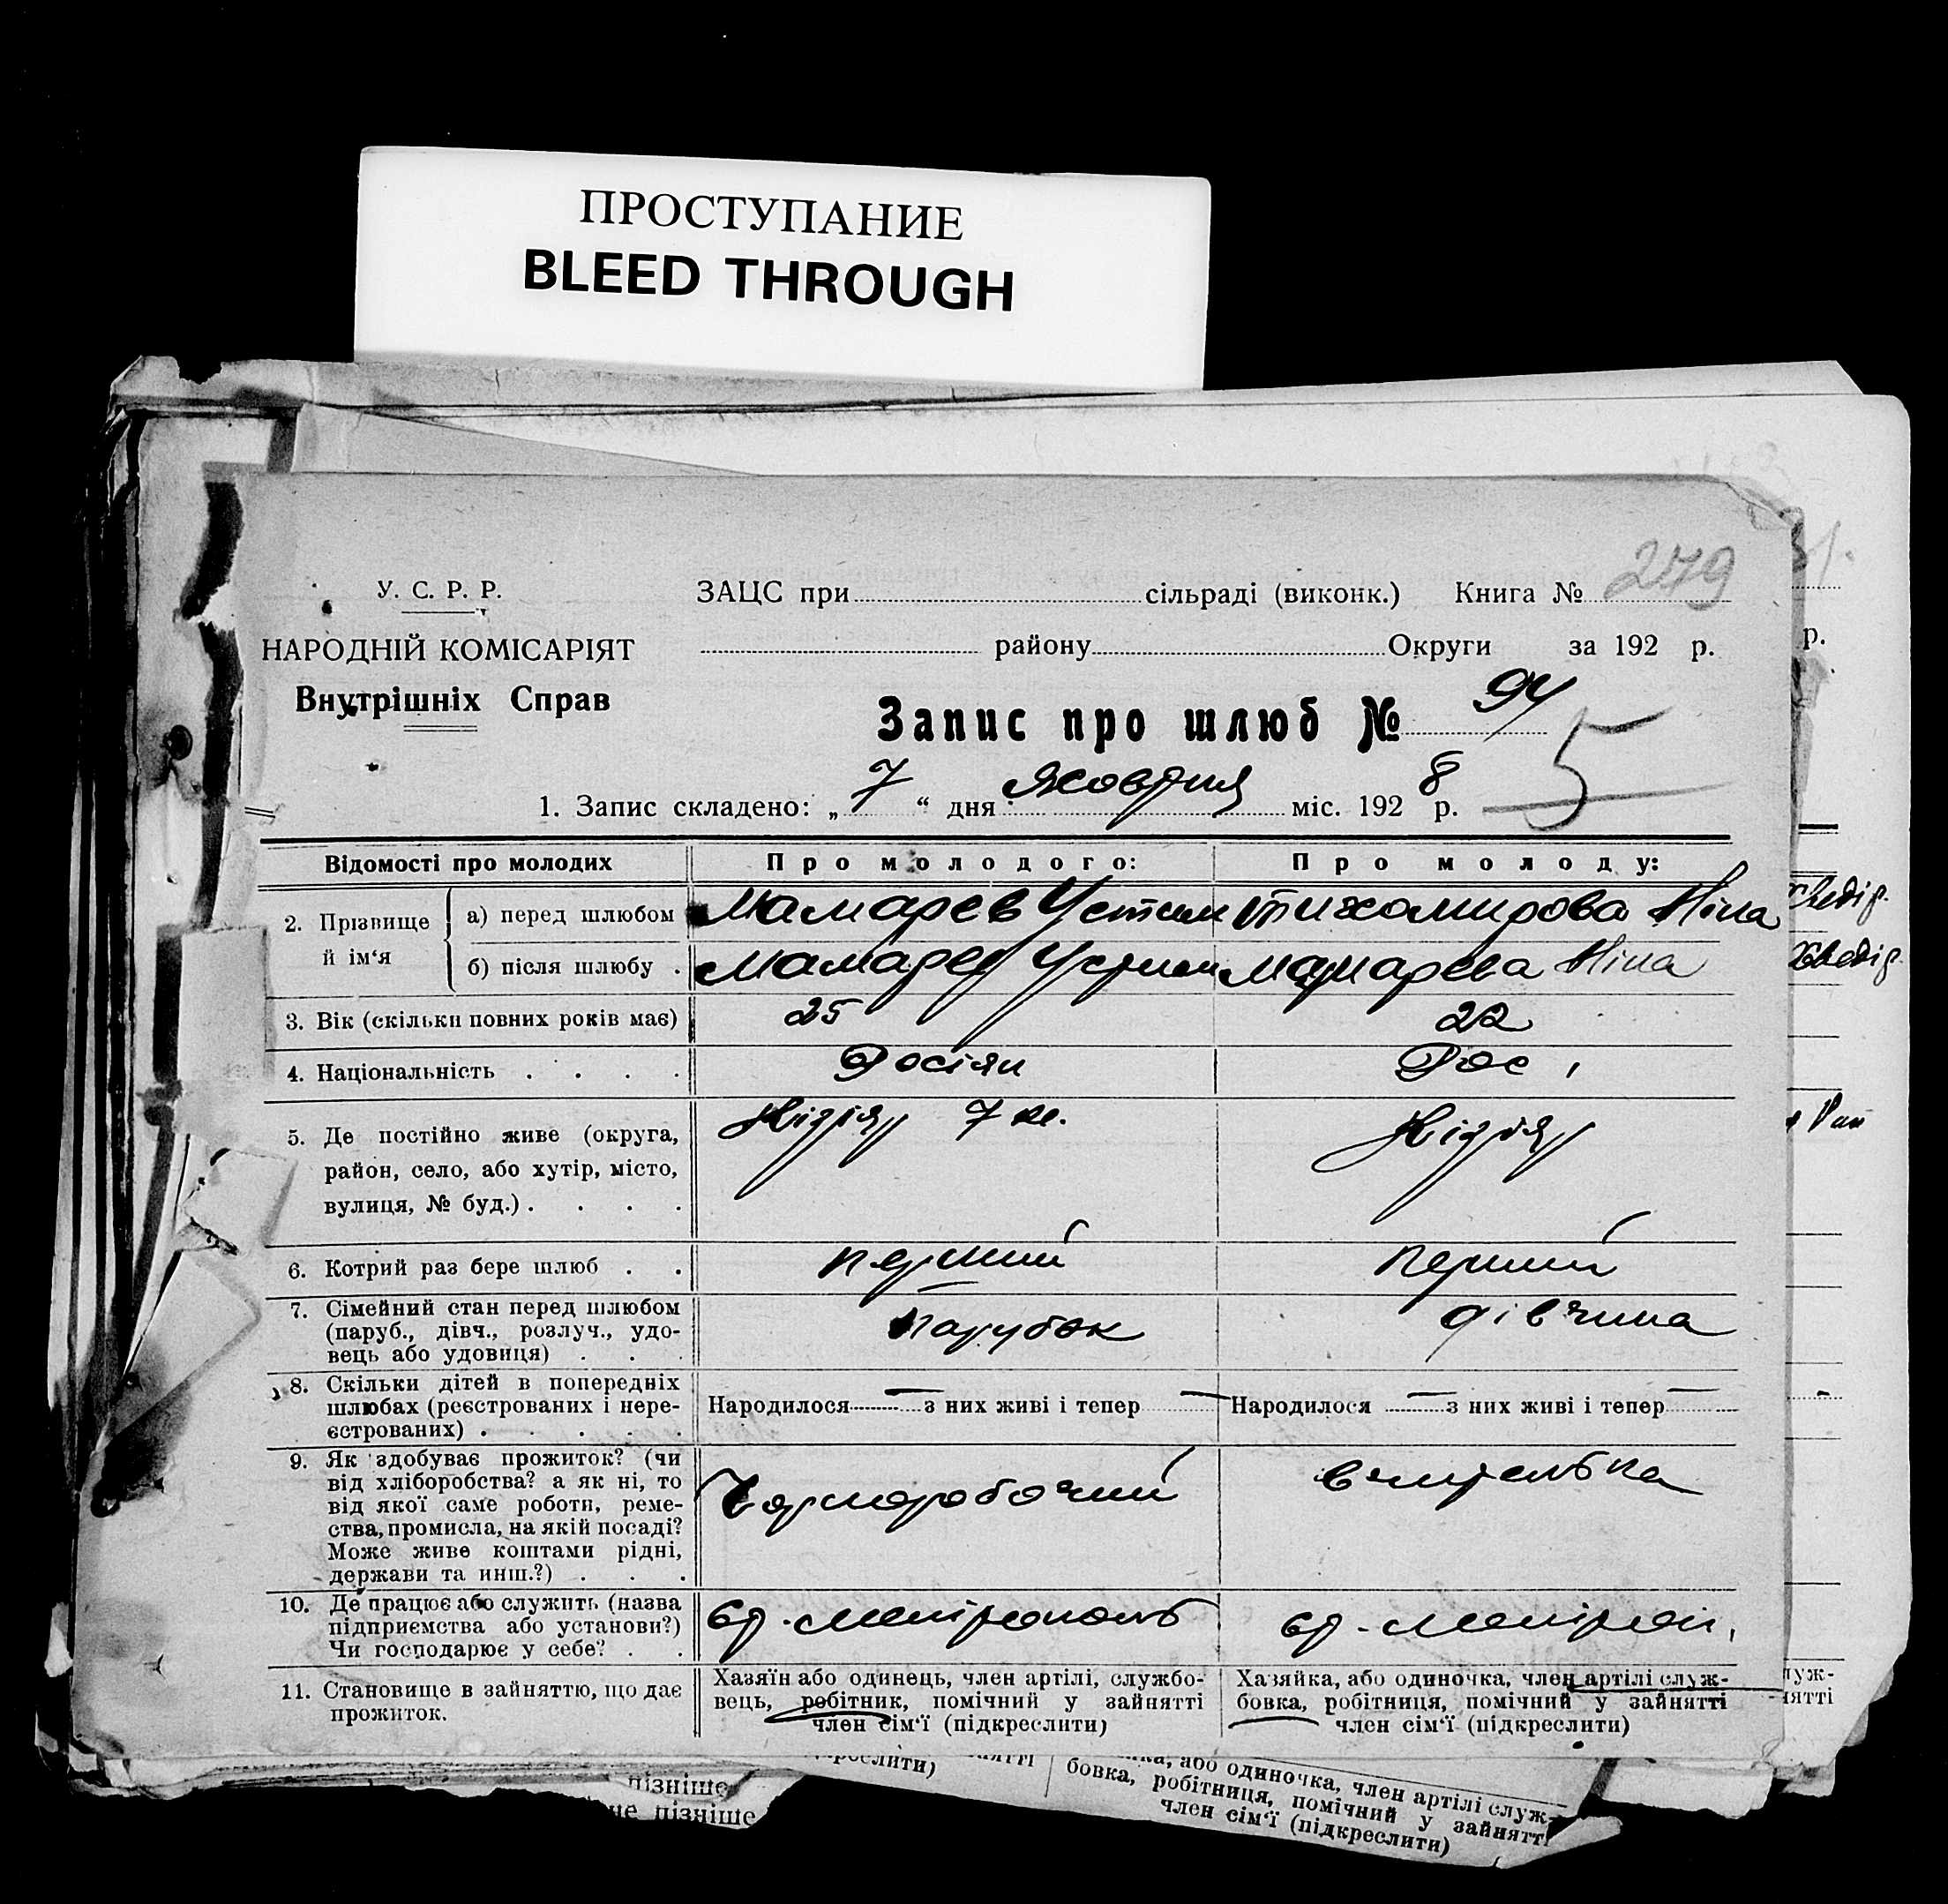 ПРОСТУПАНИЕ
BLEED THROUGH
279
У. С. Р. Р.
ЗАЦС при сільраді (виконк.) Книга №
НАРОДНІЙ КОМІСАРІЯТ
району Округи за 192 р.
р.
Внутрішніх Справ
Запис про шлюб № 94
5
1. Запис складено: „7“ дня Жовтня міс. 1928 р.
Відомості про молодих
Про молодого:
Про молоду:
2. Прізвище й ім‘я
а) перед шлюбом
Мамарев Устим
Тихомирова Ніна
б) після шлюбу .
Мамарев Устим
Мамарева Ніна
3. Вік (скільки повних років має)
25
22
4. Національність . . . .
Росіян
Рос
5. Де постійно живе (округа,
район, село, або хутір, місто,
вулиця, № буд.) . . . .
7
6. Котрий раз бере шлюб . .
перший
перший
7. Сімейний стан перед шлюбом
(паруб., дівч., розлуч., удо-
вець або удовиця) . . .
парубок
дівчина
8. Скільки дітей в попередніх
шлюбах (реєстрованих і нере-
єстрованих) . . . . .
Народилося — з них живі і тепер —
Народилося — з них живі і тепер —
9. Як здобуває прожиток? (чи
від хліборобства? а як ні, то
від якої саме роботи, реме-
ства, промисла, на якій посаді?
Може живе коштами рідні,
держави та инш.?) . . .
Чорноробочий
вчителька
10. Де працює або служить (назва
підприємства або установи?)
Чи господарює у себе? . .
11. Становище в зайняттю, що дає
прожиток.
Хазяїн або одинець, член артілі, службо-
вець, робітник, помічний у зайнятті
член сім‘ї (підкреслити)
Хазяйка, або одиночка, член артілі служ-
бовка, робітниця, помічний у зайнятті
член сім‘ї (підкреслити)
пізніше
пізніше
одиночка, член артілі служ-
бовка, робітниця, помічний у зайнятті
член сім‘ї (підкреслити)